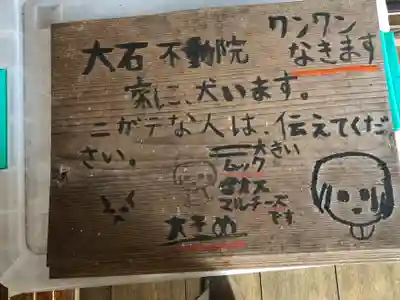 ワンワン
なきます
大石 不動院
家に、犬います。
ニガテな人は、伝えてくだ
さい。
大きい
ムック
オス
マルチーズ
です
大きめ